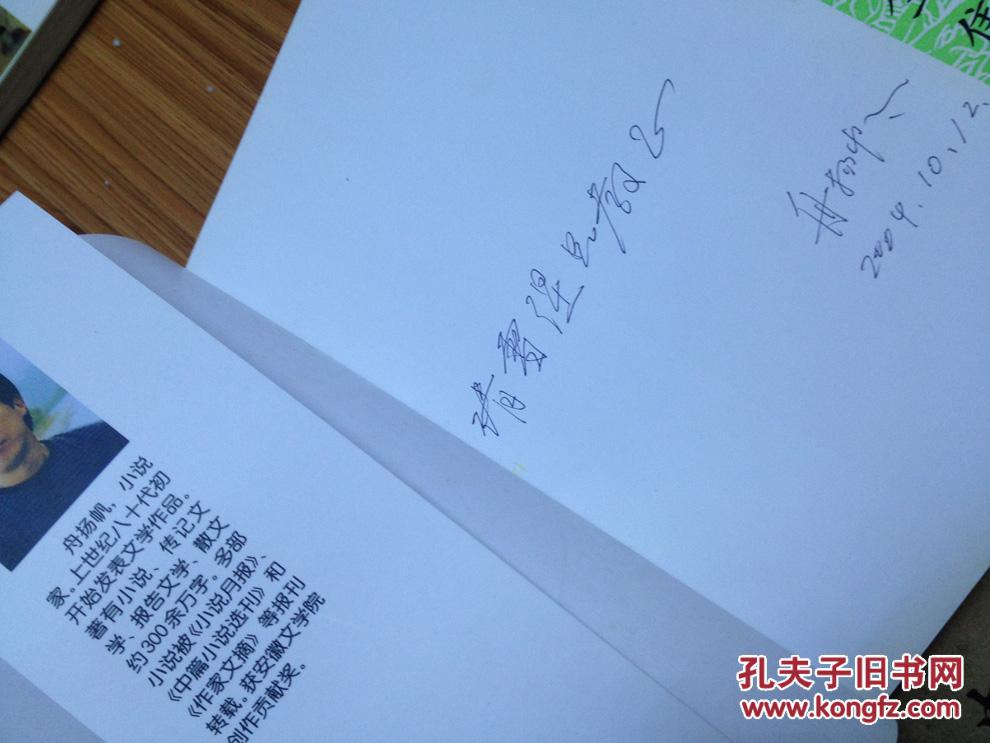 舟扬帆，小说
家。上世纪八十代初
开始发表文学作品。
著有小说、传记文
学、报告文学、散文
约300余万字。多部
小说被《小说月报》、
《中篇小说选刊》和
《作家文摘》等报刊
转载。获安徽文学院
创作贡献奖。
请
2004.10.12.
住
孔夫子旧书网
www.kongfz.com